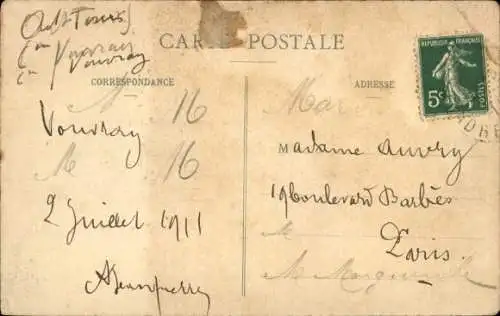 Vouvray
Vouvray
CARTE POSTALE
CORRESPONDANCE
ADRESSE
RÉPUBLIQUE FRANÇAISE
5c
POSTES
16
Vouvray
M 16
2 Juillet 1911
Madame Auvry
19 boulevard Barbès
Paris.
M
M